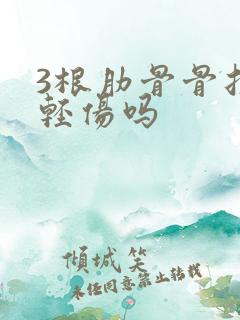 3根肋骨骨
輕傷吗
傾城笑
未经同意禁止转载